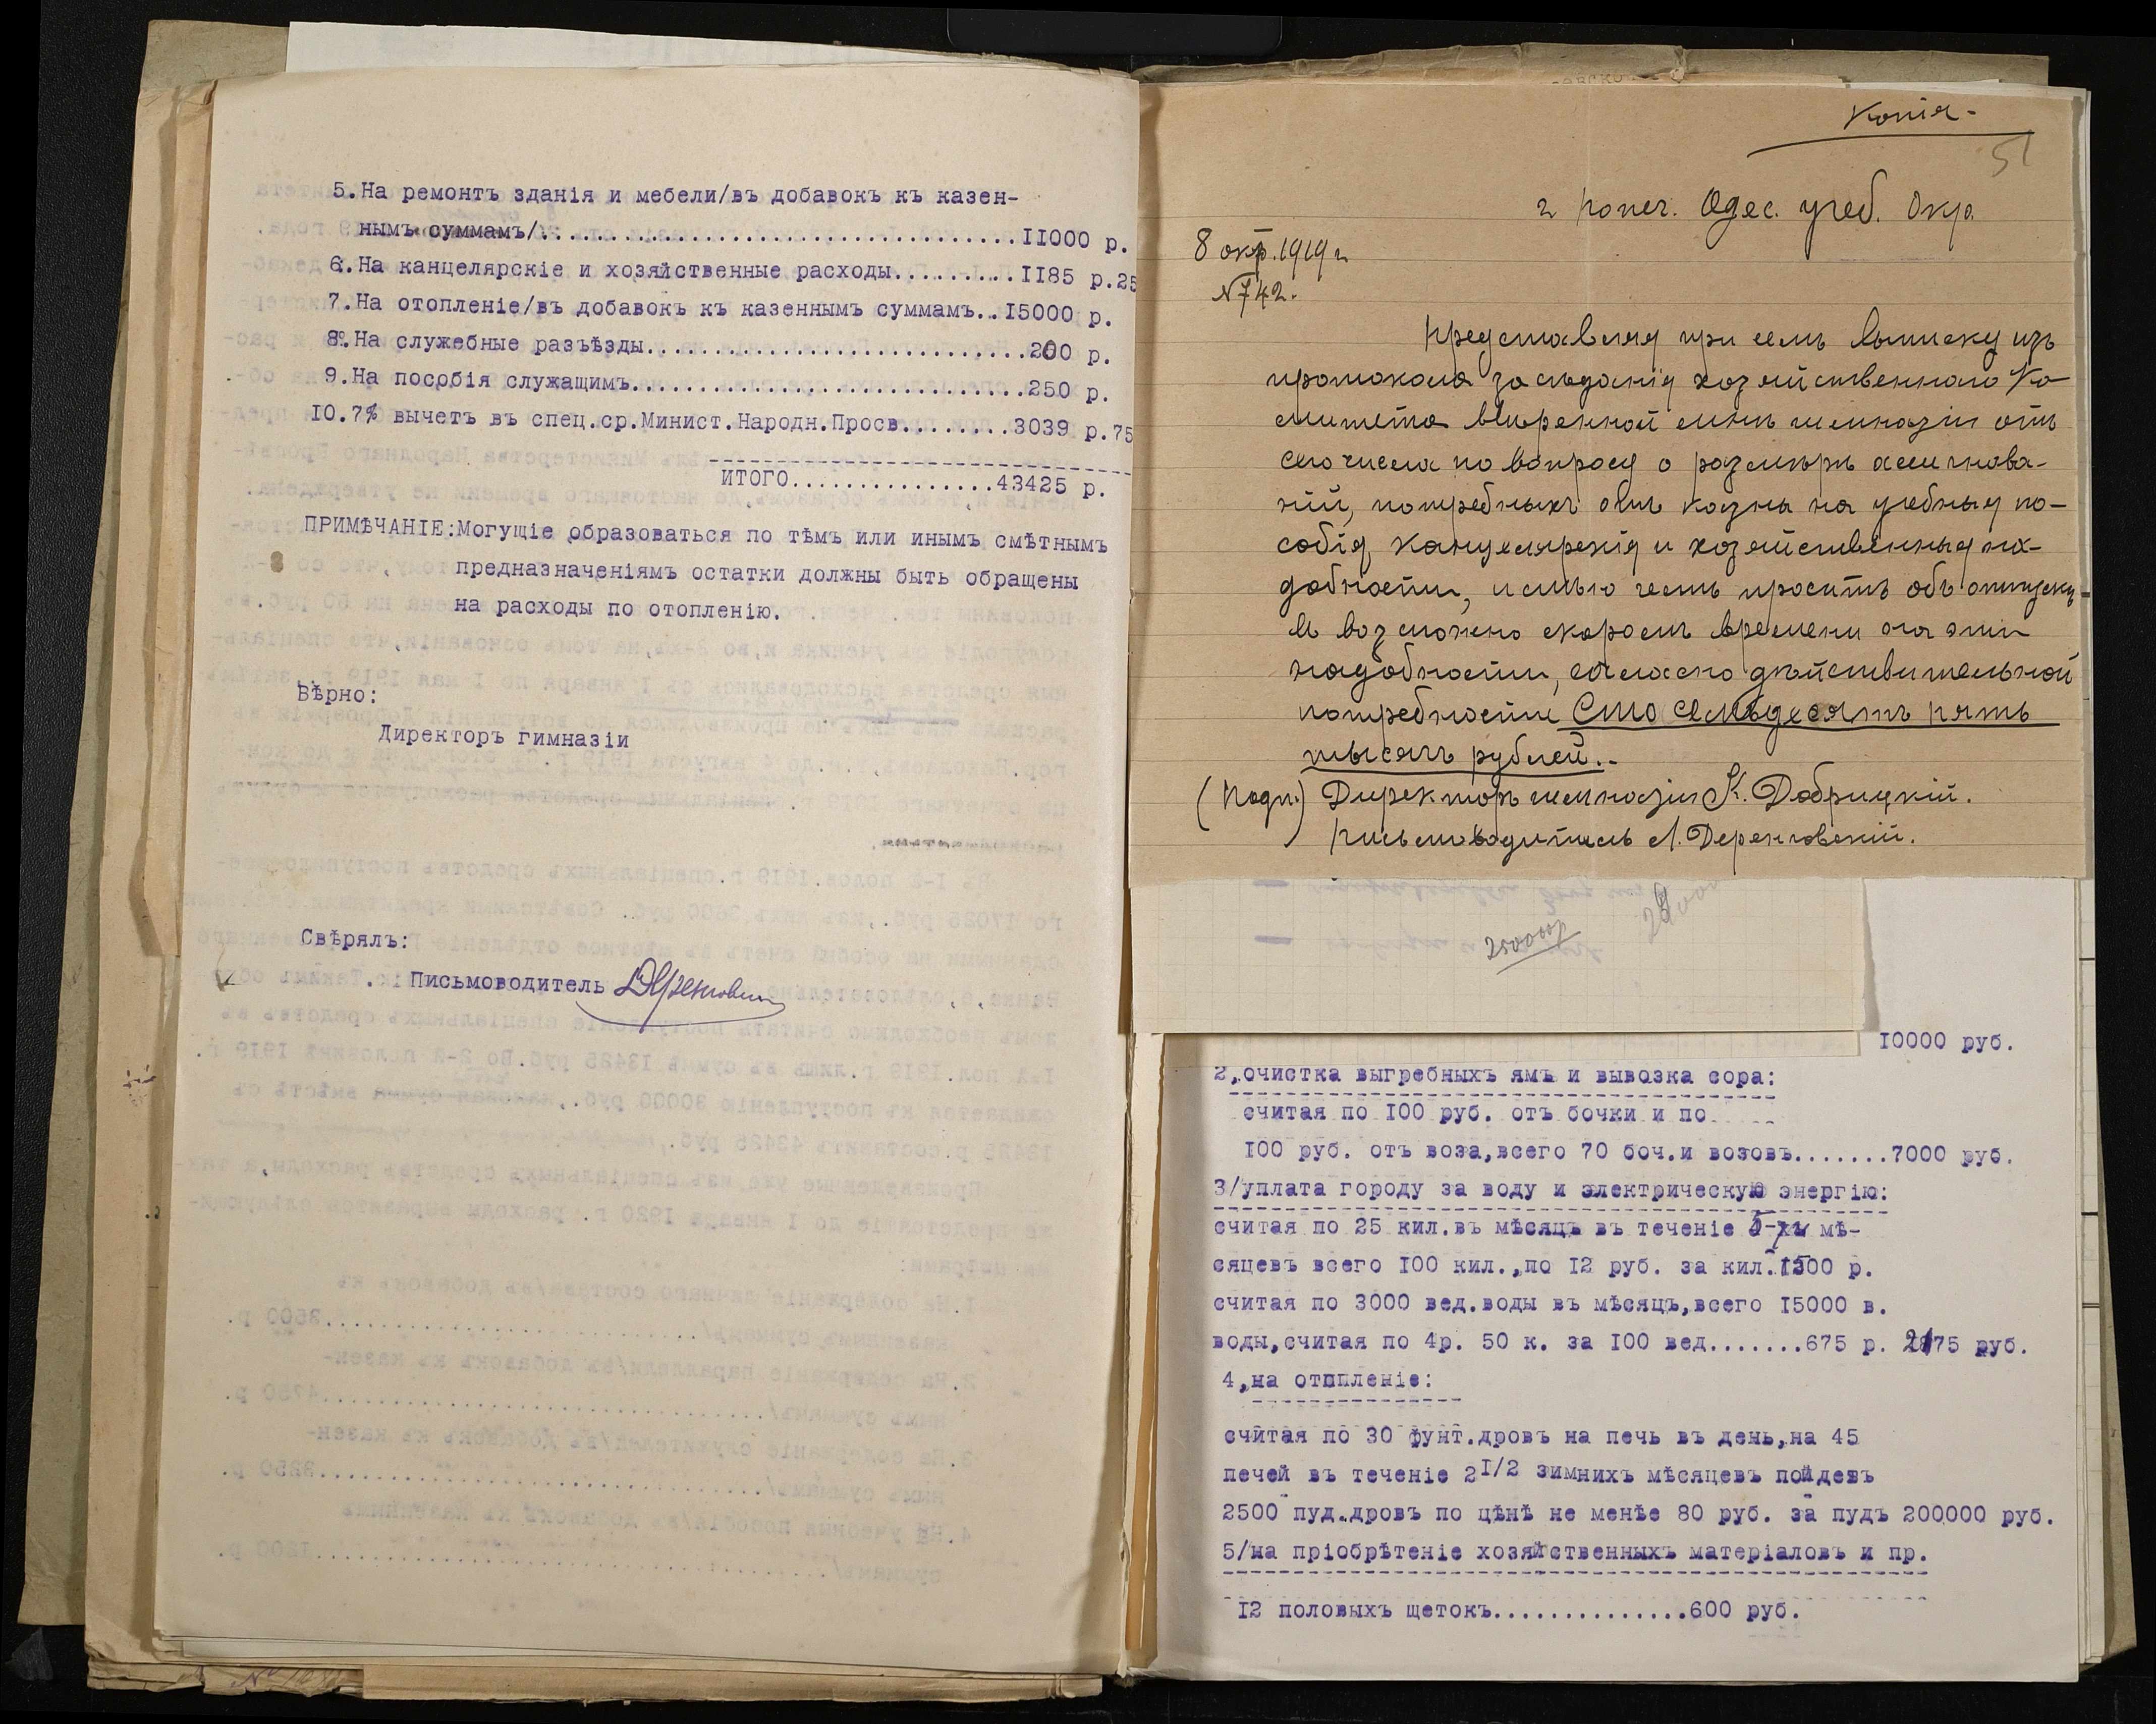 5.На ремонтъ зданія и мебели/въ добавокъ къ казен-
нымъ суммамъ/..................................11000 р.
6.На канцелярскіе и хозяйственные расходы.........1185 р.25
7.На отопленіе/въ добавокъ къ казеннымъ суммамъ..15000 р.
8.На служебные разъѣзды...........................200 р.
9.На пособія служащимъ............................250 р.
10.7% вычетъ въ спец.ср.Минист.Народн.Просв........3039 р.75
ИТОГО...............43425 р.
ПРИМѢЧАНІЕ:Могущіе образоваться по тѣмъ или инымъ смѣтнымъ
предназначеніямъ остатки должны быть обращены
на расходы по отопленію.
Вѣрно:
Директоръ гимназіи
Свѣрялъ:
Письмоводитель
Копія.
51
г Попеч. Одес. учеб. Окр.
8 окт. 1919 г
№ 742.
Представляя при семъ выписку изъ
протокола засѣданія хозяйственнаго Ко-
митета ввѣренной мнѣ гимназіи отъ
сего числа по вопросу о размѣрѣ ассигнова-
ній, потребныхъ отъ казны на учебныя по-
собія, канцелярскія и хозяйственныя на-
добности, имѣю честь просить объ отпускѣ
въ возможно скоромъ времени на эти
надобности, согласно дѣйствительной
потребности Сто семьдесятъ пять
тысячъ рублей.-
(Подп.) Директоръ гимназіи К. Добрицкій.
Письмоводитель А. Деренговскій.
250000р
10000 руб.
2,очистка выгребныхъ ямъ и вывозка сора:
считая по 100 руб. отъ бочки и по
100 руб. отъ воза,всего 70 боч.и возовъ.......7000 руб.
3/уплата городу за воду и электрическую энергію:
считая по 25 кил.въ мѣсяцъ въ теченіе 5-ти мѣ-
сяцевъ всего 100 кил.,по 12 руб. за кил.1500 р.
считая по 3000 вед.воды въ мѣсяцъ,всего 15000 в.
воды,считая по 4р. 50 к. за 100 вед.......675 р. 2175 руб.
4,на отопленіе:
считая по 30 фунт.дровъ на печь въ день,на 45
печей въ теченіе 2 1/2 зимнихъ мѣсяцевъ пойдевъ
2500 пуд.дровъ по цѣнѣ не менѣе 80 руб. за пудъ 200000 руб.
5/на пріобрѣтеніе хозяйственныхъ матеріаловъ и пр.
12 половыхъ щетокъ..............600 руб.